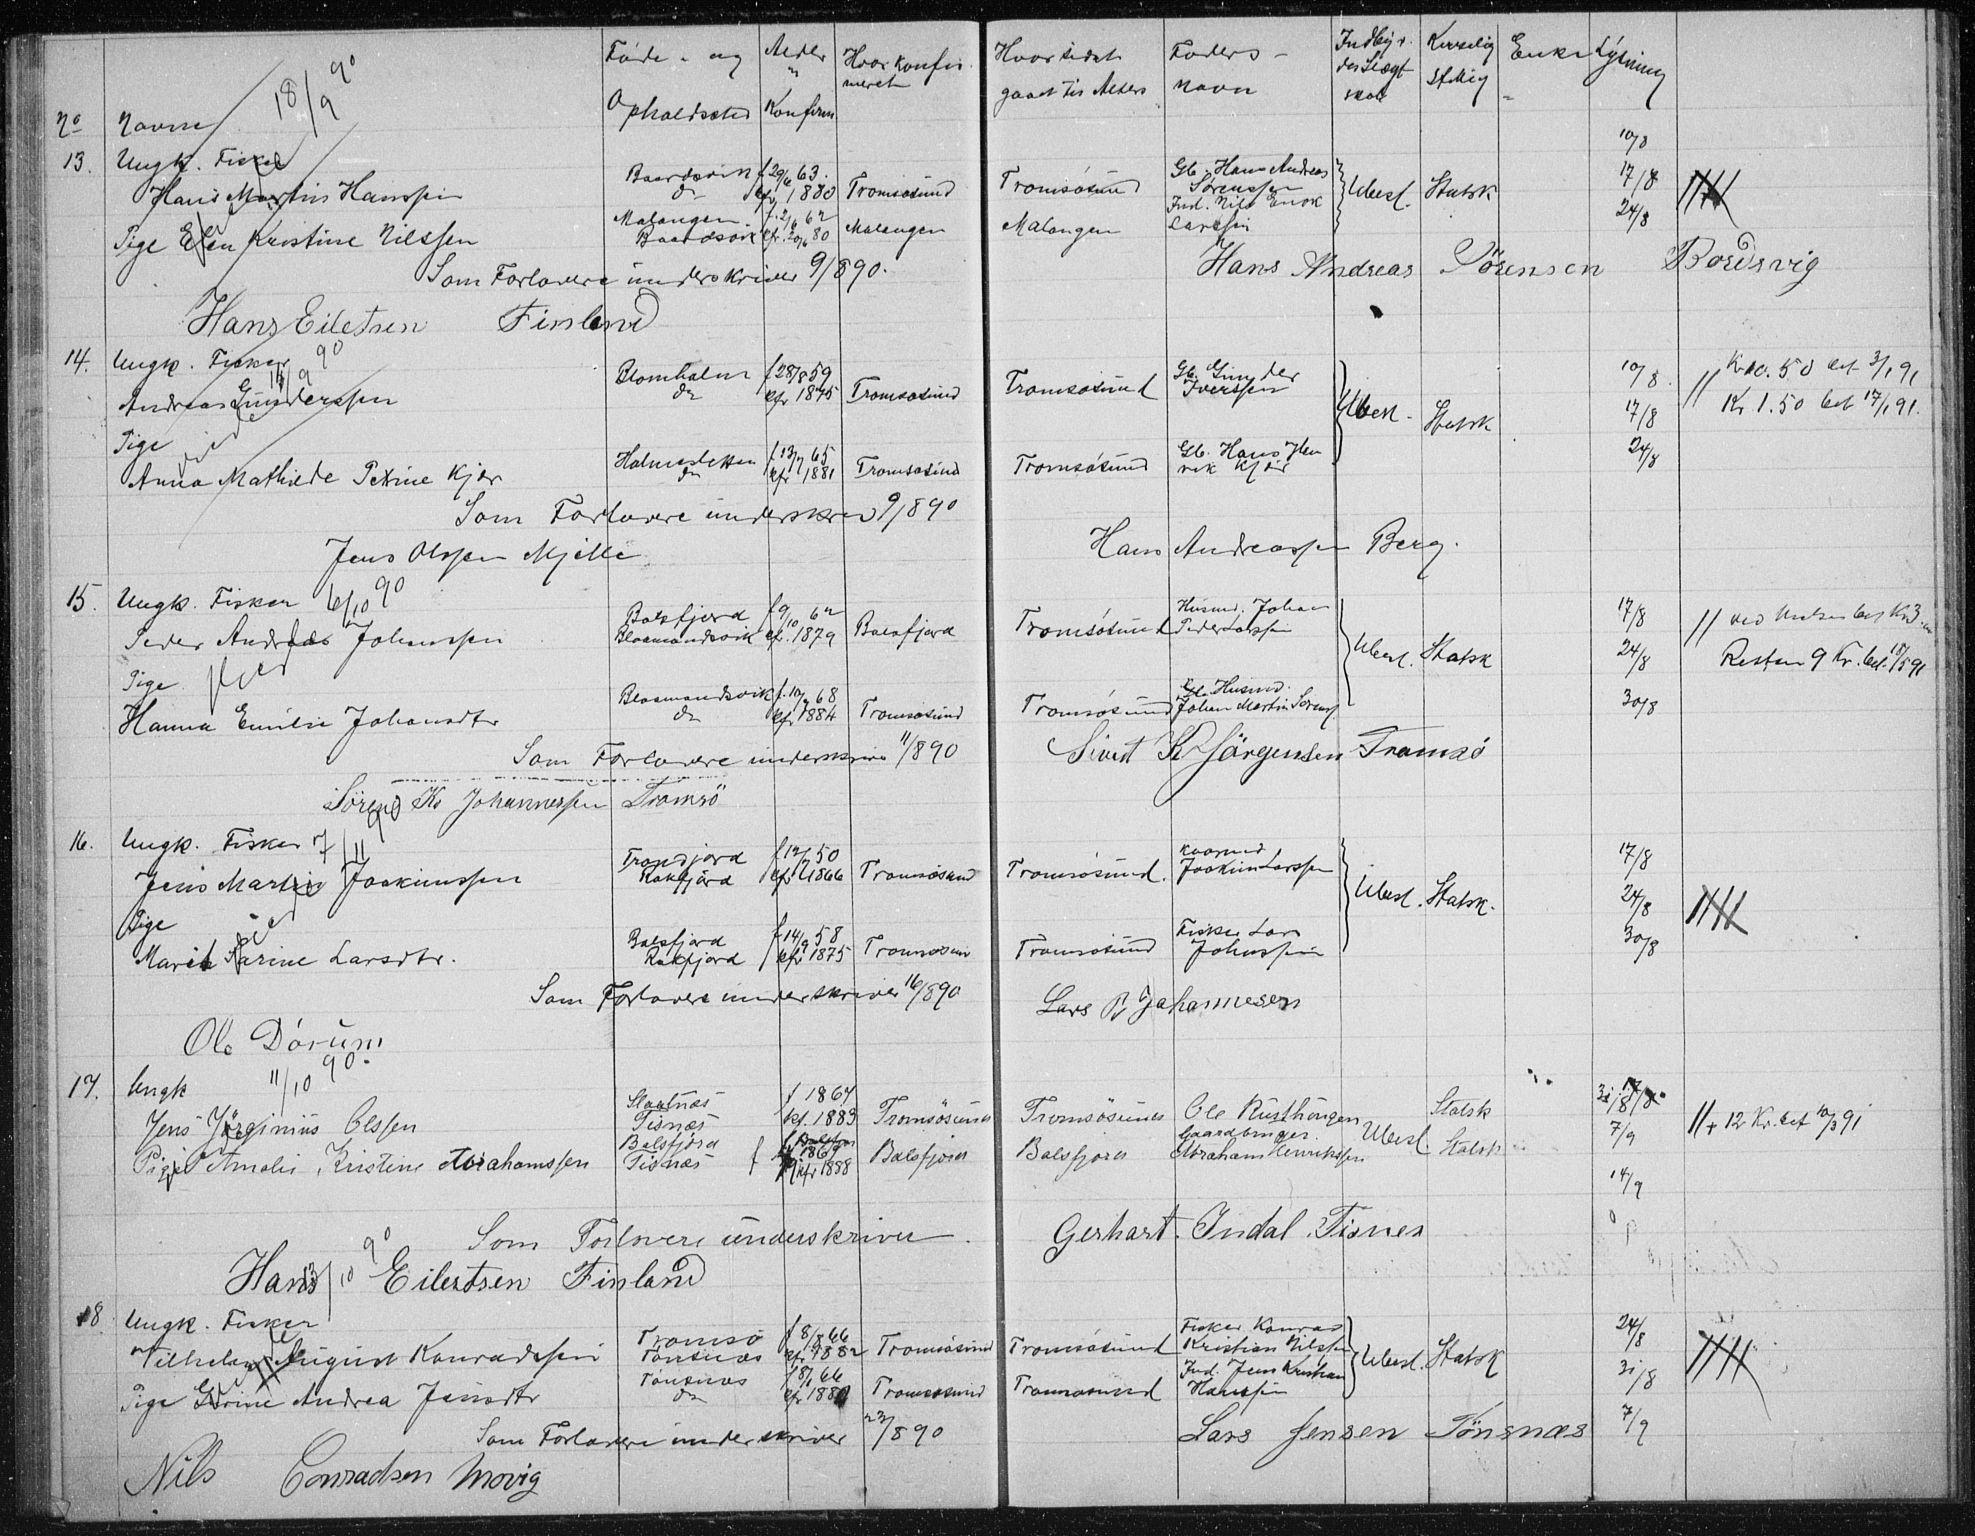 No Navne
18/9 90
Føde- og Opholdssted
Alder " Konfirm
Hvor konfirmeret
Hvor sidst gaaet til Alters
Faders navn
Enke
Lysning
13. Ungk. Fisker
Hans Martin Hanssen
Baardsvik f 29/6 63.
do kfr 1880
Tromsøsund
Tromsøsund
Gb. Hans Andreas Sørenssen
Ubesl. Statsk
10/8 17/8 24/8
Pige Elen Kristine Nilssen
Malangen
Baardsvik
Malangen
Malangen
Ind. Nils Enok Larssen
Som Forlovere underskriver 9/8 90.
Hans Andreas Sørensen Bordsvig
Hans Eilertsen Finland
14. Ungk. Fisker
Andreas Gunderssen
viede
Blomholm f 28/8 59
do kfr 1875
Tromsøsund
Tromsøsund
Gb. Gunder Iverssen
Ubesl. Statsk
10/8. 17/8 24/8
// Kr 10.50 bet 3/1 91
Kr. 1.50 bet 17/1 91.
Pige
Anna Mathilde Petrine Kjær
Holmesletten f 13/7 65
do kfr 1881
Tromsøsund
Tromsøsund
Gb. Hans Henrik Kjær
Som Forlovere underskrev 9/8 90
Jens Olssen Mjelle
Hans Andreassen Berg.
15. Ungk. Fisker 6/10 90
Peder Andreas Johanssen
viede
Balsfjord f 9/10 62
kfr. 1879
Balsfjord
Tromsøsund
Husmd. Johan Peder Larssen
Ubesl. Statsk
17/8 24/8 30/8
Resten 9 Kr. bet. 18/5 91
Pige
Hanna Emilie Johansdtr
do kfr 1884
Tromsøsund
Tromsøsund
Johan Martin Sørens
Som Forlovere underskriver 11/8 90
Sivert K Jörgensen Tromsö
Sören Kr Johannessen Tromsö
16. Ungk. Fisker 7/11 90
Jens Martin Joakimssen
viede
Tromsøsund
Tromsøsund.
Joakim Larssen
Ubesl. Statsk.
17/8 24/8 30/8
Pige
Marit Karine Larsdtr.
Balsfjord f 14/9 58
kfr 1875
Tromsøsun
Tromsøsund
Fisker Lars Johnssen
Som Forlovere underskriver 16/8 90
Lars P Johannesen
Ole Dörum
17. Ungk 11/10 90.
Jens Jörginius Olssen
f 1867
Tisnæs kf. 1883
Tromsösund
Tromsösund
Ole
Statsk
7/9
// + 12 Kr. bet 10/3 91
Pige Amalie Kristine Abrahamssen
Balsfjord
Tisnæs kfr 1888
Balsfjord
Balsfjord
Gaardbruger Abraham Henrikssen
Ubesl Statsk
14/9
Som Forlovere underskriver.
Gerhart. Indal. Tisnes
Hans Eilertsen Finland
13/10 90
18. Ungk. Fisker
Vilhelm August Konradssen
Tromsö f 8/8 66
Tönsnæs kfr 1882
Tromsøsund
Tromsøsund
Fisker Konrad Kristian Nilssen
Ubesl. Statsk
24/8 31/8
Pige Grine Andrea Jensdtr
Tönsnæs
do
Tromsøsund
Tromsøsund
Ind. Jens Kristian Hanssen
Som Forlovere underskriver 23/8 90
Lars Jensen Tönsnæs
7/9
Nils Conradsen Movig